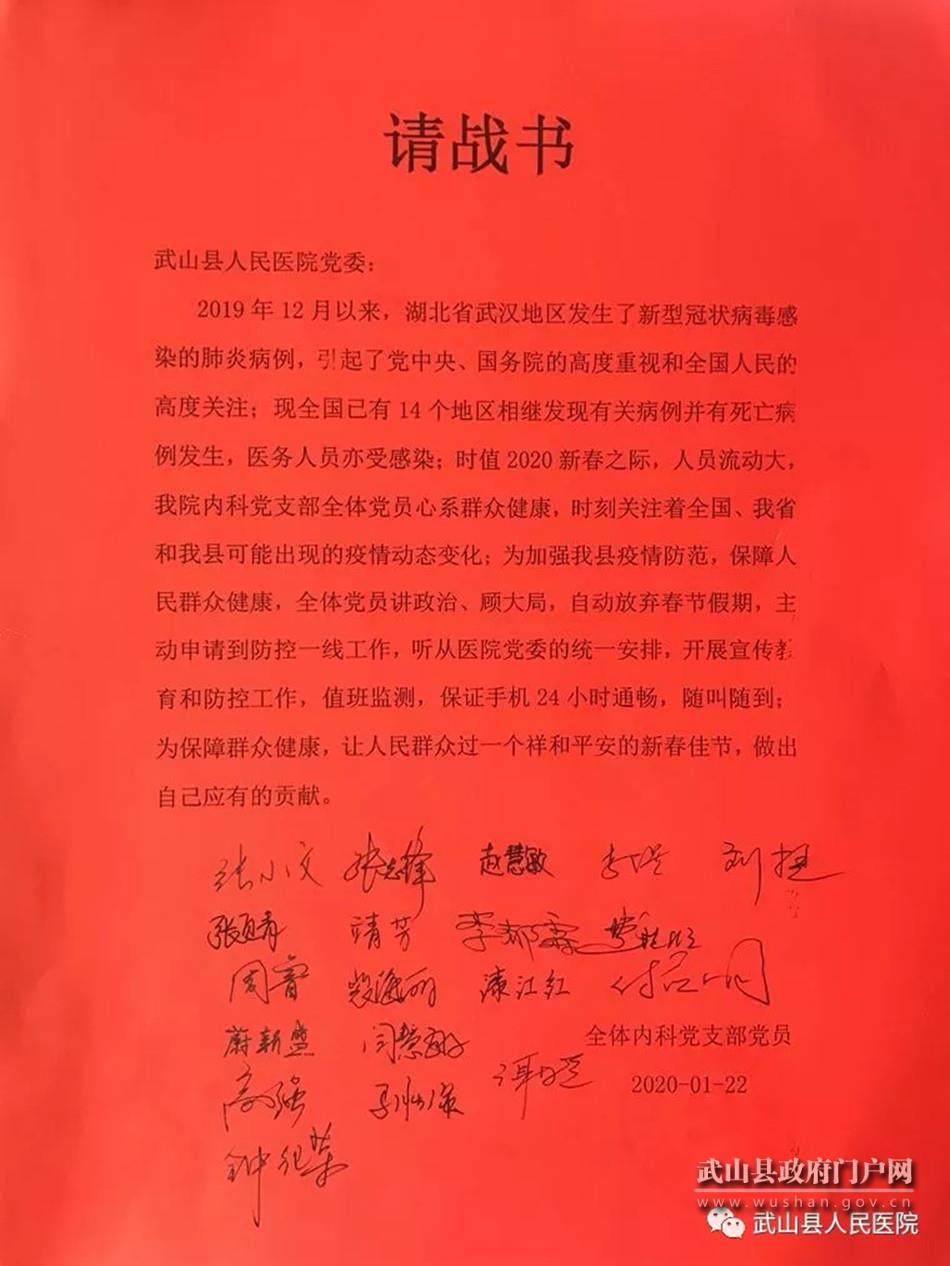 请战书
武山县人民医院党委：
2019年12月以来，湖北省武汉地区发生了新型冠状病毒感
染的肺炎病例，引起了党中央、国务院的高度重视和全国人民的
高度关注；现全国已有14个地区相继发现有关病例并有死亡病
例发生，医务人员亦受感染；时值2020新春之际，人员流动大，
我院内科党支部全体党员心系群众健康，时刻关注着全国、我省
和我县可能出现的疫情动态变化；为加强我县疫情防范，保障人
民群众健康，全体党员讲政治、顾大局，自动放弃春节假期，主
动申请到防控一线工作，听从医院党委的统一安排，开展宣传教
育和防控工作，值班监测，保证手机24小时通畅，随叫随到；
为保障群众健康，让人民群众过一个祥和平安的新春佳节，做出
自己应有的贡献。
张小文 赵慧敏
靖芳
周睿 漆江红
蔚新盛 闫慧
全体内科党支部党员
高强
2020-01-22
武山县政府门户网
www.wushan.gov.cn
武山县人民医院